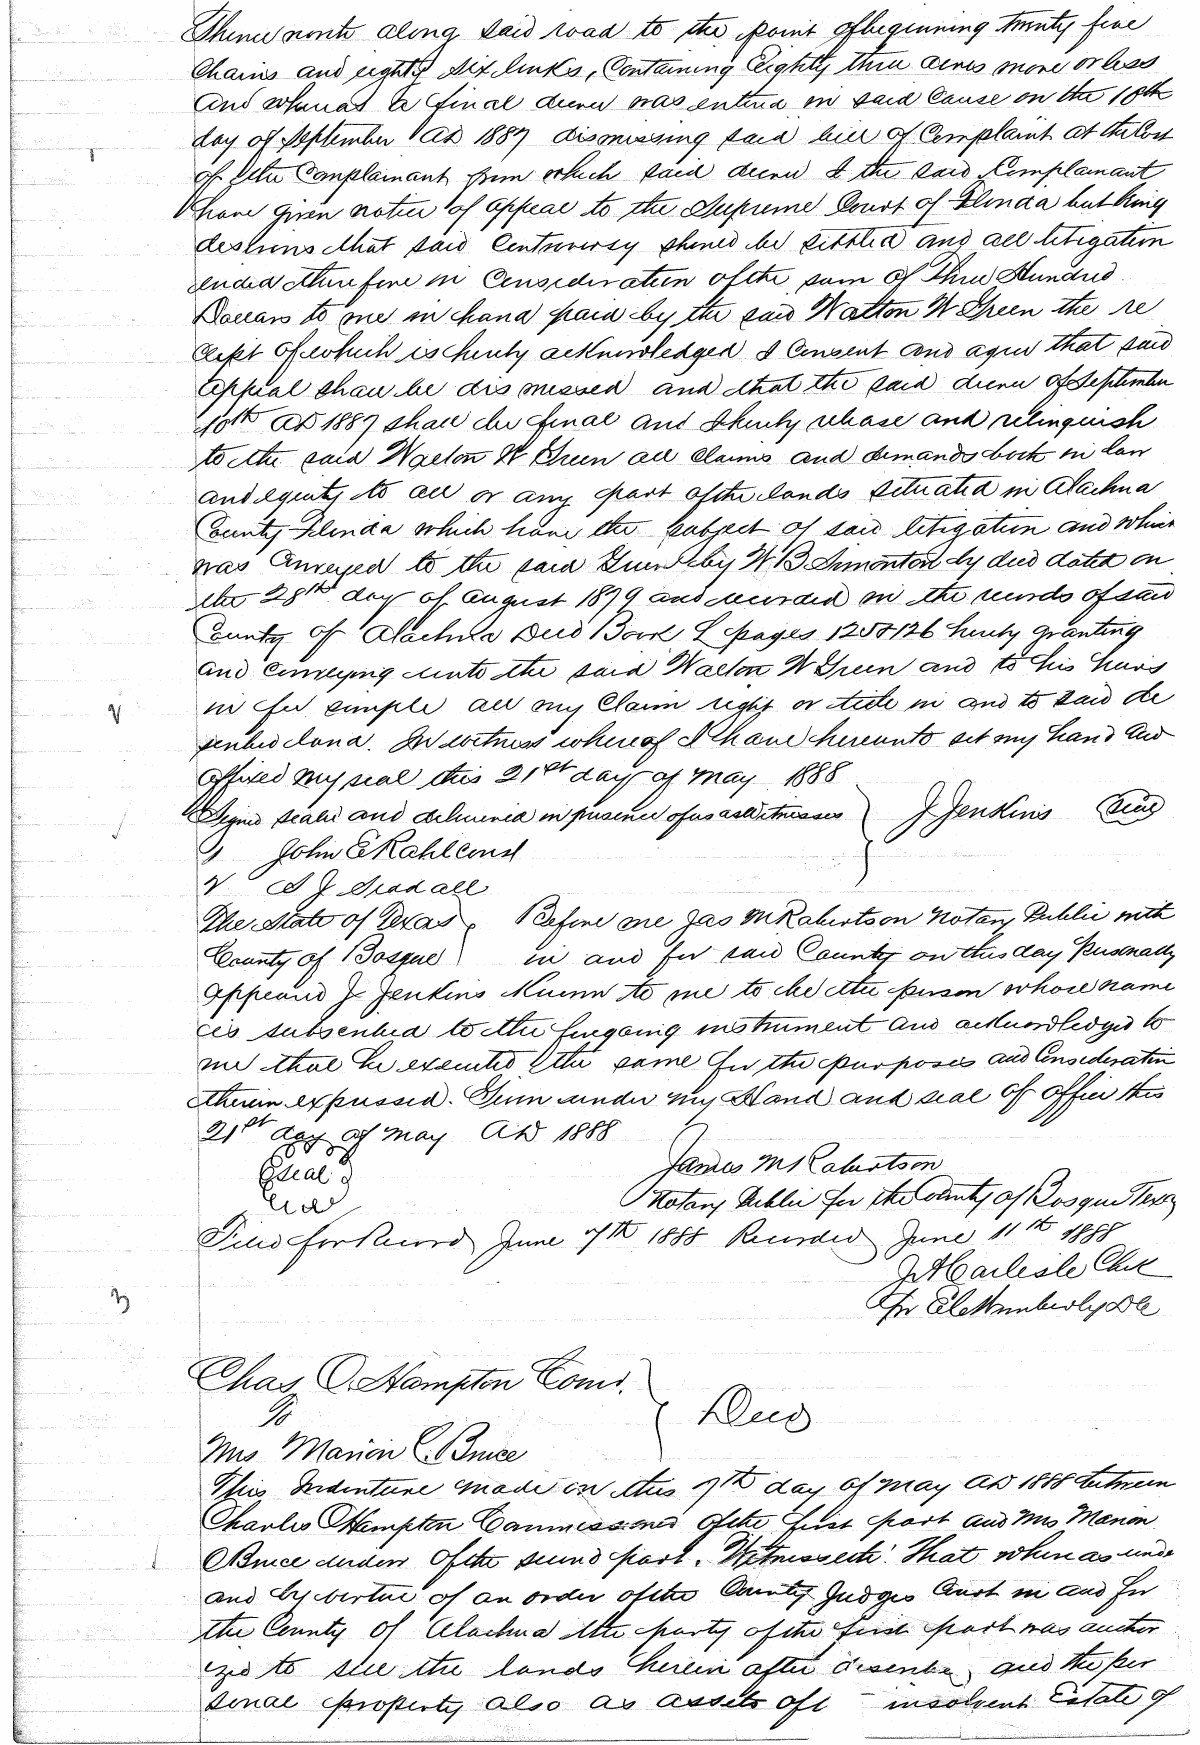 Thence north along said road to the point of beginning twenty five
Chains and eighty six links, Containing Eighty three acres more or less
and whereas a final decree was entered in said Cause on the 10th
day of September AD 1887 dismissing said bill of Complaint at the Cost
of the Complainant from which said decree I the said Complainant
have given notice of appeal to the Supreme Court of Florida but being
desirous that said Controversy should be settled and all litigation
ended therefore in Consideration of the sum of Three Hundred
Dollars to me in hand paid by the said Walton W Green the re
ceipt of which is hereby acknowledged I Consent and agree that said
appeal shall be dismissed and that the said decree of September
10th AD 1887 shall be final and I hereby release and relinquish
to the said Walton W Green all claims and demands both in law
and equity to all or any part of the lands situated in Alachua
County Florida which have the subject of said litigation and which
was Conveyed to the said Green by W B Simonton by deed dated on
the 28th day of August 1879 and recorded in the records of said
County of Alachua Deed Book L pages 125 & 126 hereby granting
and conveying unto the said Walton W Green and to his heirs
in fee simple all my Claim right or title in and to said de
scribed land. In witness whereof I have hereunto set my hand and
affixed my seal this 21st day of May 1888
Signed sealed and delivered in presence of us as Witnesses J Jenkins Seal
John E Kahl
The State of Texas Before me Jas M Robertson Notary Public with
County of Bosque in and for said County on this day Personally
appeared J. Jenkins Known to me to be the person whose name
is subscribed to the foregoing instrument and acknowledged to
me that he executed the same for the purposes and Consideration
therein expressed. Given under my Hand and seal of office this
21st day of May AD 1888
Seal James M Robertson
Notary Public for the County of Bosque Texas
Filed for Record June 7th 1888 Recorded June 11th 1888
Carlisle Clk
Per
Chas O. Hampton Comr.
To Deed
Mrs Marion C. Bruce
This Indenture made on this 7th day of May AD 1888 between
Charles Hampton Commissioner of the first part and Mrs Marion
Bruce widow of the second part. Witnesseth: That whereas unde
and by virtue of an order of the County Judges Court in and for
the County of Alachua the party of the first part was author
ized to sell the lands herein after describe and the per
sonal property also as assets of insolvent Estate of